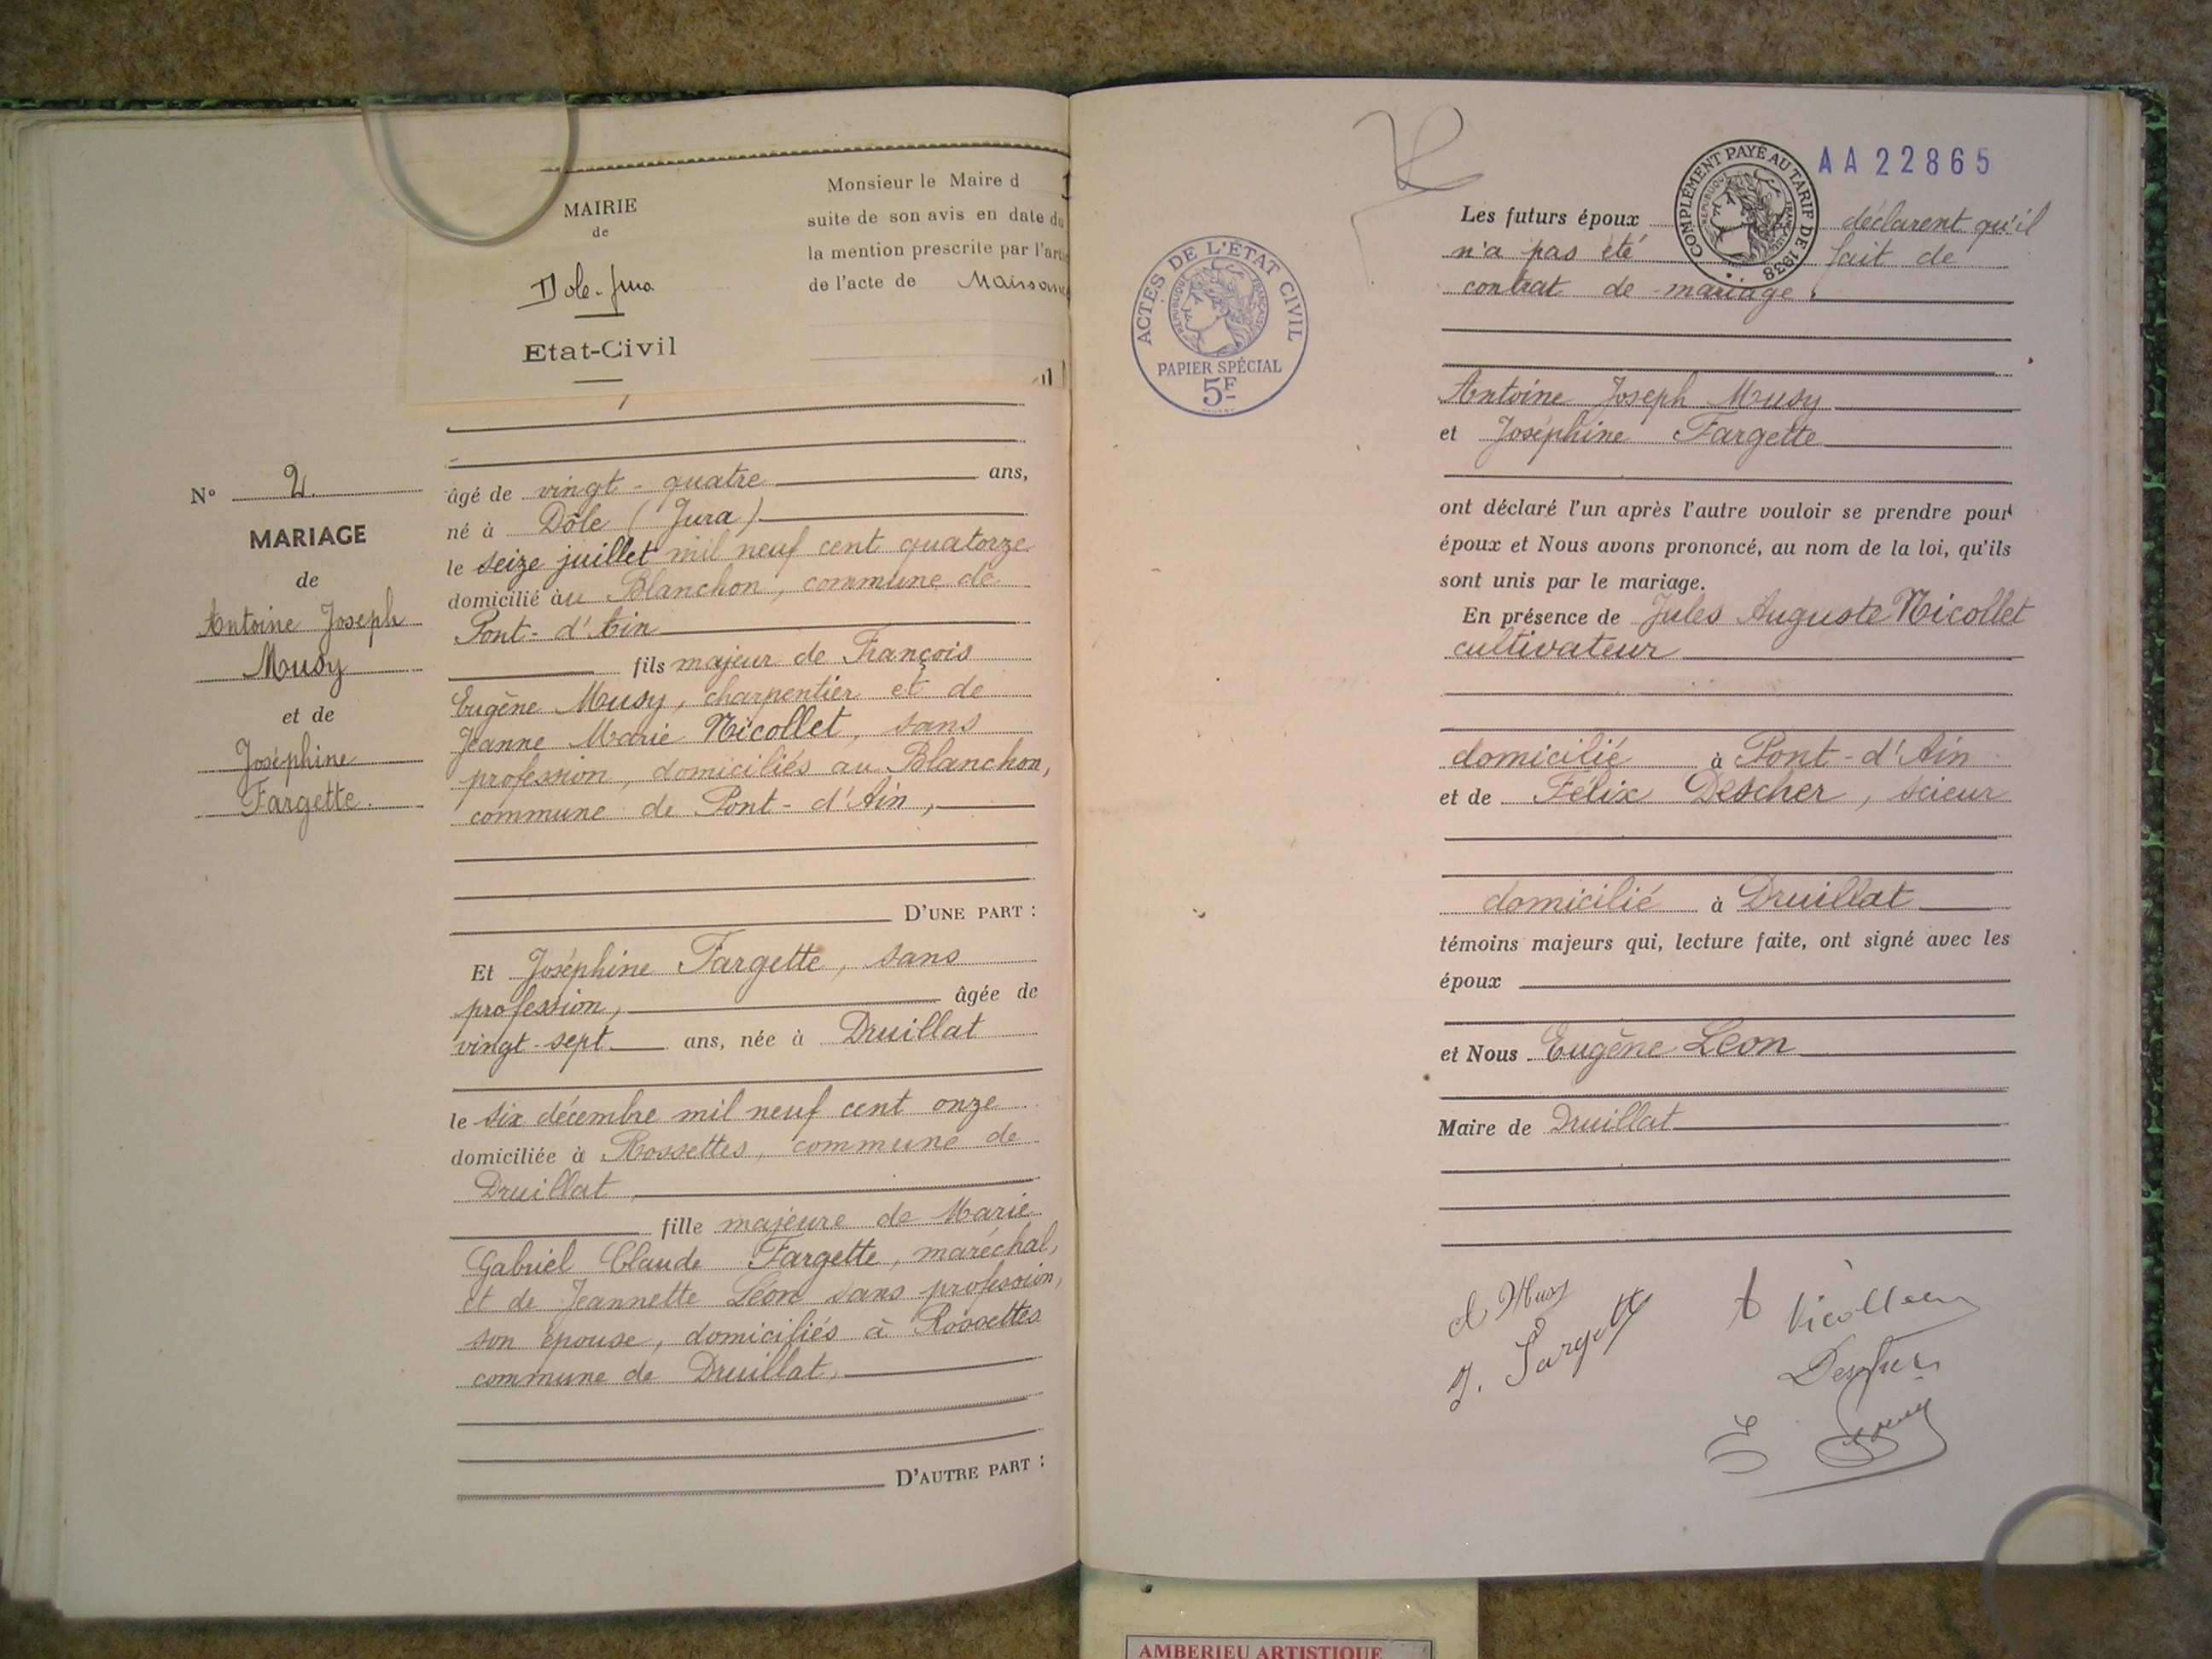 MAIRIE
de
Dole-Jura
Etat-Civil
Monsieur le Maire d
suite de son avis en date du
la mention prescrite par l'arti
de l'acte de Naissance
N° 2
MARIAGE
de
Antoine Joseph
Musy
et de
Joséphine
Fargette.
âgé de vingt-quatre ans,
né à Dôle (Jura)
le seize juillet mil neuf cent quatorze
domicilié au Blanchon, commune de
Pont-d'Ain
fils majeur de François
Eugène Musy, charpentier et de
Jeanne Marie Nicollet, sans
profession, domiciliés au Blanchon,
commune de Pont-d'Ain,
D'UNE PART :
Et Joséphine Fargette, sans
profession, âgée de
vingt-sept ans, née à Druillat
le six décembre mil neuf cent onze
domiciliée à Rossettes, commune de
Druillat,
fille majeure de Marie
Gabriel Claude Fargette, maréchal,
et de Jeannette Léon sans profession,
son épouse, domiciliés à Rossettes
commune de Druillat,
D'AUTRE PART :
ACTES DE L'ÉTAT CIVIL
RÉPUBLIQUE FRANÇAISE
PAPIER SPÉCIAL
5F
COMPLÉMENT PAYÉ AU TARIF DE 1938
RÉPUBLIQUE FRANÇAISE
AA22865
Les futurs époux déclarent qu'il
n'a pas été fait de
contrat de mariage.
Antoine Joseph Musy
et Joséphine Fargette
ont déclaré l'un après l'autre vouloir se prendre pour
époux et Nous avons prononcé, au nom de la loi, qu'ils
sont unis par le mariage.
En présence de Jules Auguste Nicollet
cultivateur
domicilié à Pont-d'Ain
et de Félix Descher, scieur
domicilié à Druillat
témoins majeurs qui, lecture faite, ont signé avec les
époux
et Nous Eugène Léon
Maire de Druillat
A Musy
J. Fargette
Nicollet
Descher
E
AMBERIEU ARTISTIQUE